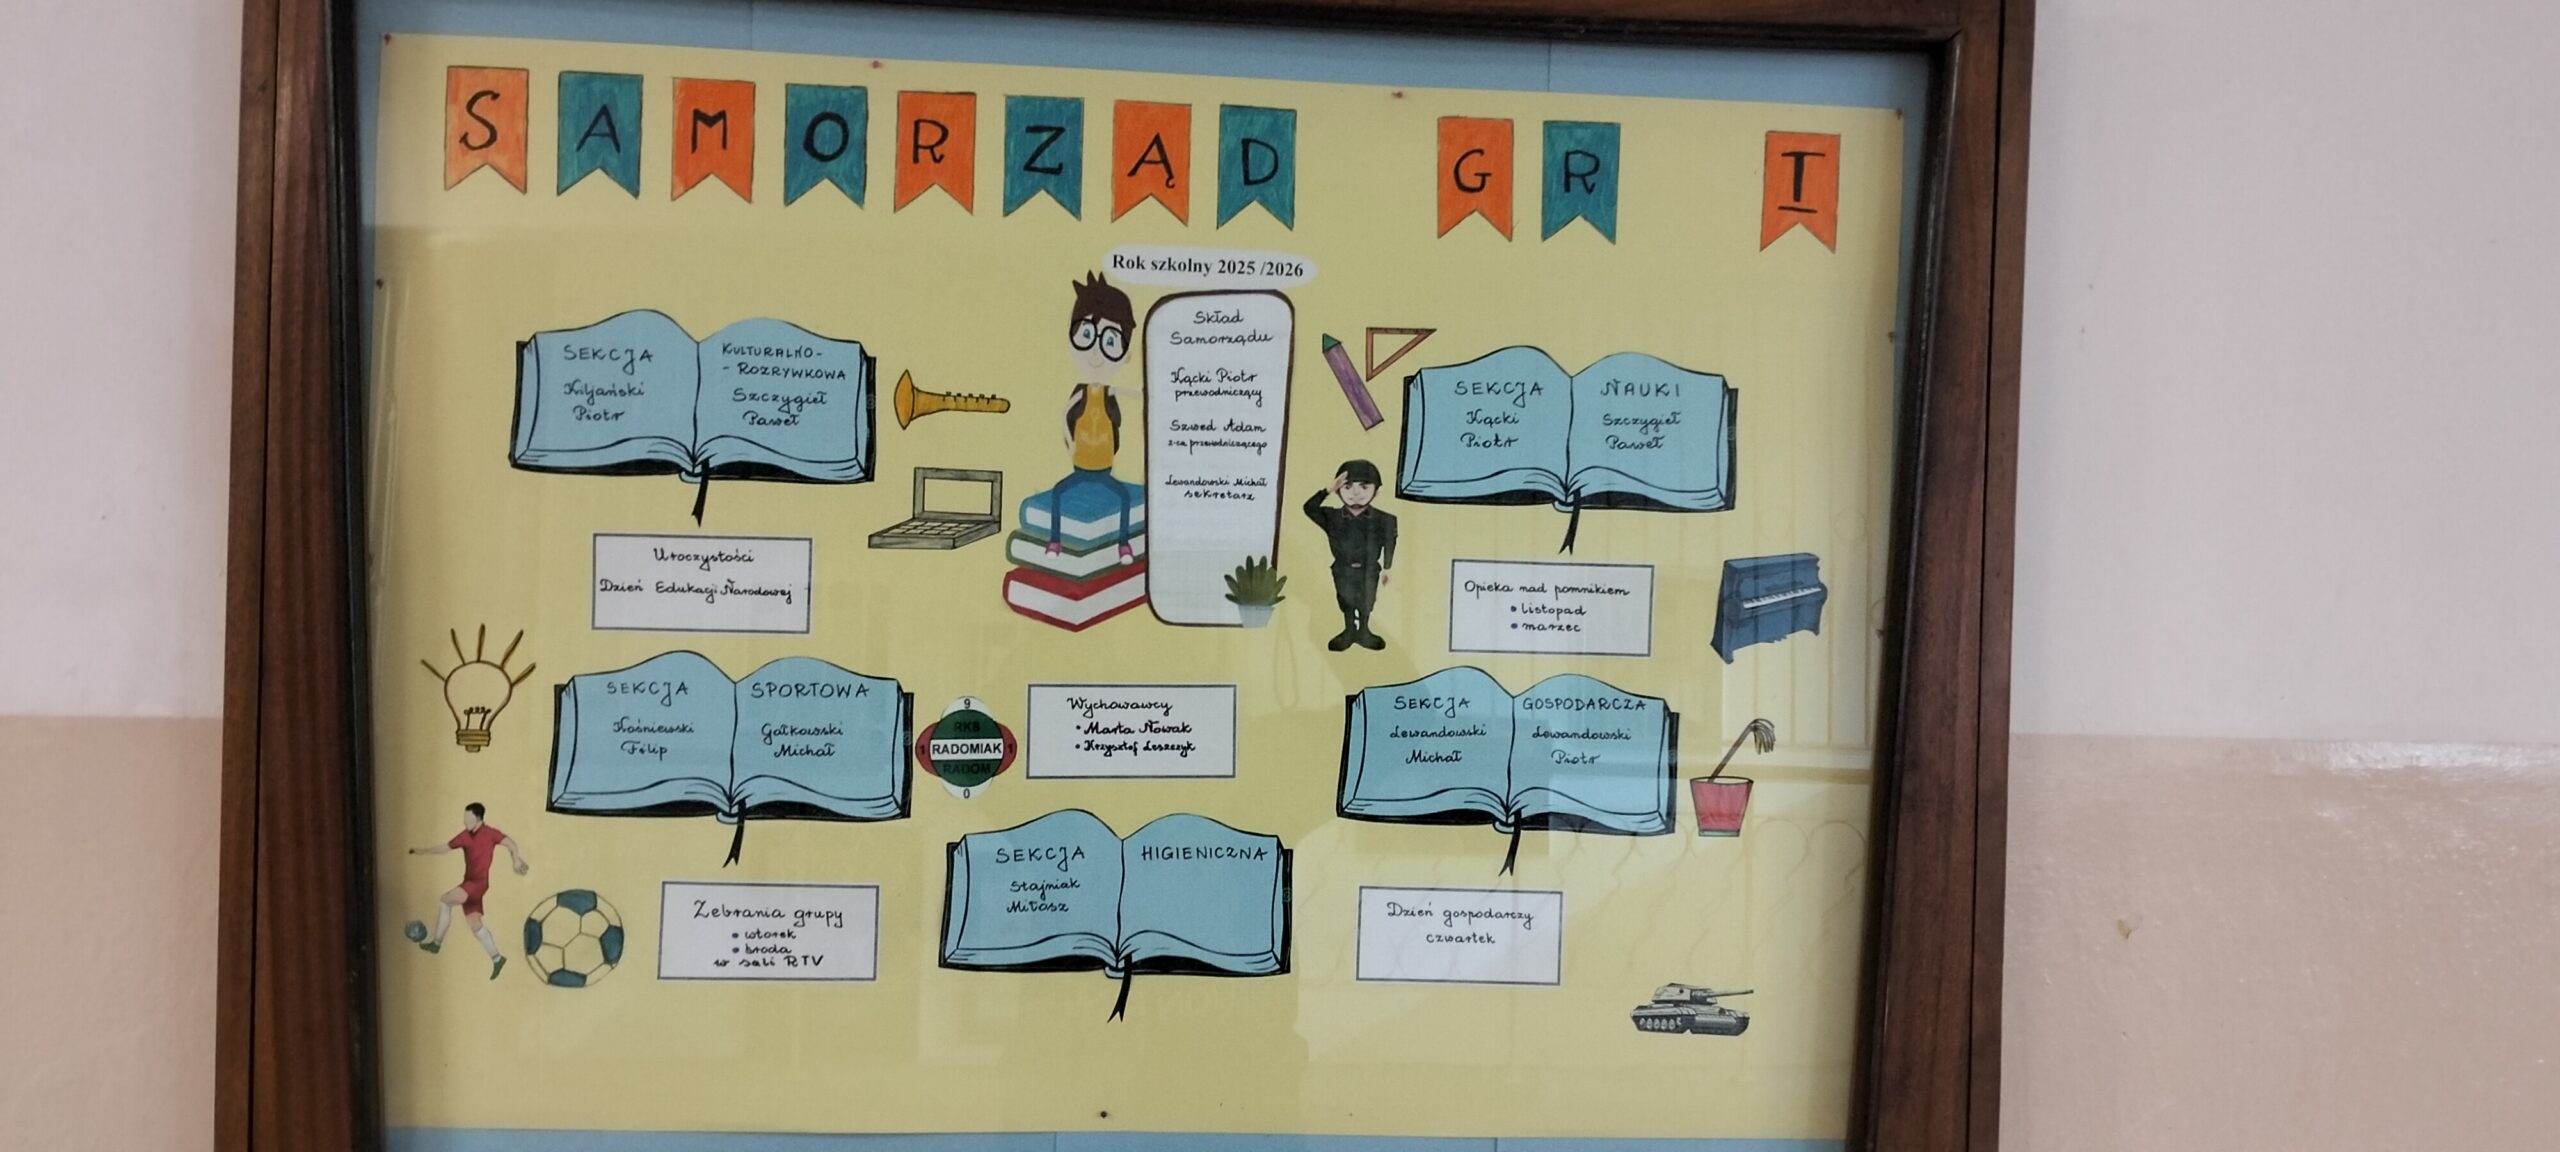 SAMORZĄD GR I
Rok szkolny 2025 /2026
SEKCJA
Kiljański
Piotr
KULTURALNO-
- ROZRYWKOWA
Szczygieł
Paweł
Skład
Samorządu
Kącki Piotr
przewodniczący
Szwed Adam
z-ca przewodniczącego
Lewandowski Michał
sekretarz
SEKCJA
Kącki
Piotr
NAUKI
Szczygieł
Paweł
Uroczystości
Dzień Edukacji Narodowej
Opieka nad pomnikiem
• listopad
• marzec
SEKCJA
Kośniewski
Filip
SPORTOWA
Gałkowski
Michał
9
RKS
1 RADOMIAK 1
RADOM
0
Wychowawcy
• Marta Nowak
• Krzysztof Leszczyk
SEKCJA
Lewandowski
Michał
GOSPODARCZA
Lewandowski
Piotr
SEKCJA
Stajniak
Miłosz
HIGIENICZNA
Zebrania grupy
• wtorek
• środa
w sali RTV
Dzień gospodarczy
czwartek